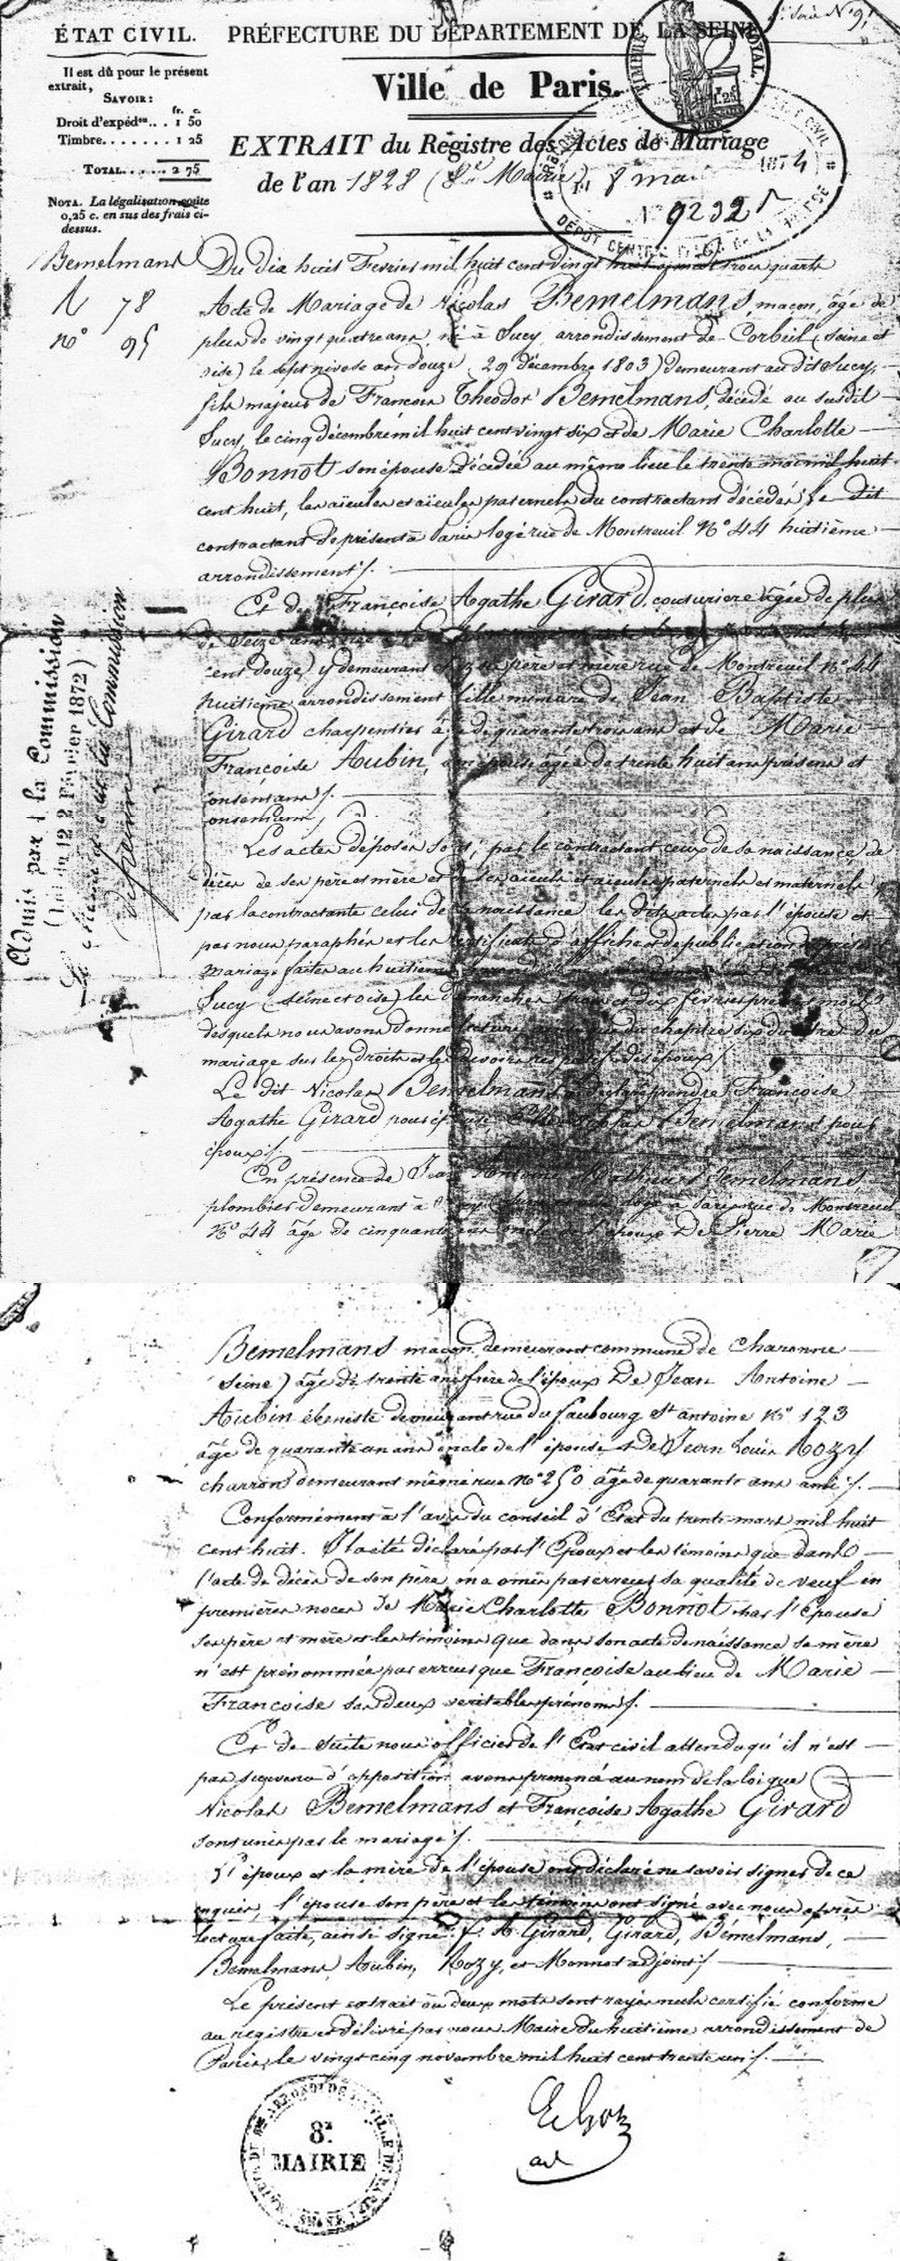 ÉTAT CIVIL.
Il est dû pour le présent
extrait,
SAVOIR:
fr. c.
Droit d'expédon.. 1 50
Timbre....... 1 25
TOTAL..... 2 75
NOTA. La légalisation coûte
0,25 c. en sus des frais ci-
dessus.
PRÉFECTURE DU DÉPARTEMENT DE LA SEINE
Ville de Paris.
EXTRAIT du Registre des Actes de Mariage
de l'an 1828 (8e Mairie)
TIMBRE ROYAL
1.25
SEINE
8 mai 1874
9232
Bemelmans
N 78
no 95
Du dix huit Fevrier mil huit cent vingt huit à trois quarts
Acte de Mariage de Nicolas Bemelmans, maçon, âgé de
plus de vingt quatre ans, né à Sucy, arrondissement de Corbeil (Seine et
oise) le sept nivose an douze (29 décembre 1803) demeurant au dit Sucy,
fils majeur de Francois Theodor Bemelmans, décédé au susdit
Sucy, le cinq décembre mil huit cent vingt six et de Marie Charlotte
Bonnot son épouse décédée au même lieu le trente mai mil huit
cent huit, les aïeules et aïeules paternels du contractant décédés; le dit
contractant de présent à Paris logé rue de Montreuil No 44 huitième
arrondissement /.
Et de Françoise Agathe Girard, couturiere âgée de plus
de Seize ans
cent douze) y demeurant chez ses père et mère rue de Montreuil no 44
huitième arrondissement fille mineure de Jean Baptiste
Girard charpentier âgé de quarante trois ans et de Marie
Françoise Aubin, son épouse, âgée de trente huit ans présens et
consentans /.
consentans /
Les actes déposés sont; par le contractant ceux de sa naissance de
décès de ses père et mère et de ses aïeuls et aïeules paternels et maternels
par la contractante celui de sa naissance les dits actes par l'épouse et
par nous paraphés et les certificats d'affiche et de publication du présent
mariage faites au huitième
Sucy (seine et oise) les dimanches trois et dix février présent mois
desquels nous avons donné lecture ainsi que du chapitre six du titre du
mariage sur les droits et les devoirs respectifs des époux /
Le dit Nicolas Bemelmans a déclaré prendre Françoise
Agathe Girard pour épouse, Nicolas Bemelmans pour
époux /.
En présence de Jean Antoine Mathieu Bemelmans
plombier demeurant à logé à Paris rue de Montreuil
No 44 âgé de cinquante ans oncle de l'époux De Pierre Marie
Admis par la Commission
(Loi du 12 Février 1872)
Le membre de la Commission
Bemelmans maçon, demeurant commune de Charonne
Seine) âgé de trente ans frère de l'époux De Jean Antoine
Aubin ébeniste demeurant rue du faubourg St antoine No 123
âgé de quarante un ans oncle de l'épouse et de Jean Louis Rozy
charron demeurant même rue No 250 âgé de quarante ans ami /.
Conformément à l'avis du conseil d'Etat du trente mars mil huit
cent huit. Il a été déclaré par l'Epoux et les témoins que dans
l'acte de décès de son père, on a omis par erreur sa qualité de veuf en
premières noces de Marie Charlotte Bonnot, par l'épouse
ses père et mère et les témoins que dans son acte de naissance sa mère
n'est prénommée par erreur que Françoise au lieu de Marie
Francoise ses deux veritables prénoms /.
Et de suite nous officier de l'Etat civil attendu qu'il n'est
pas survenu d'opposition avons prononcé au nom de la loi que
Nicolas Bemelmans et Françoise Agathe Girard
sont unis par le mariage /.
L'époux et la mère de l'épouse ont déclaré ne savoir signer de ce
enquis, l'épouse son père et les témoins ont signé avec nous après
lecture faite, ainsi signé: f. A. Girard, Girard, Bémelmans,
Bemelmans, Aubin, Rozy, et Monnot adjoint /
Le présent extrait où deux mots sont rayés nuls certifié conforme
au registre et délivré par nous Maire du huitième arrondissement de
Paris, le vingt cinq novembre mil huit cent trente un /.
8e
MAIRIE